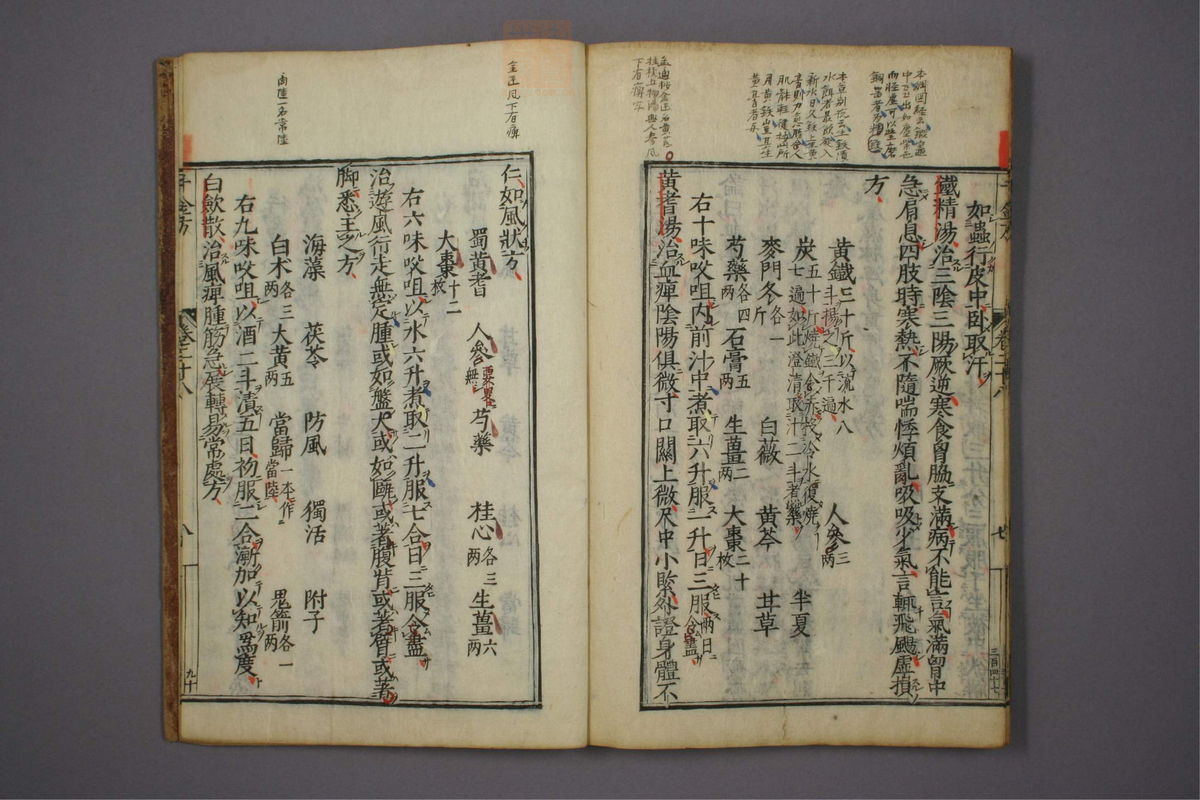 如蟲行皮中卧取汗
鐵精湯治三陰三陽厥逆寒食胷脇支滿病不能言氣滿胷中
急肩息四肢時寒熱不隨喘悸煩亂吸吸少氣言輒飛颺虛損
方
黃鐵三十斤以流水八斗揚之三千遍
炭五十斤燒鐵令赤投冷水復燒七遍如此澄清取汁二斗煮藥
人參三兩
半夏
麥門冬各一斤
白薇
黃芩
甘草
芍藥各四兩
石膏五兩
生薑二兩
大棗二十枚
右十味㕮咀內前汁中煮取六升服一升日三服兩日令盡
黃耆湯治血痺陰陽俱微寸口關上微尺中小緊外證身體不
三百四十七
七
仁如風狀方
蜀黃耆
人參要畧無
芍藥
桂心各三兩
生薑六兩
大棗十二枚
右六味㕮咀以水六升煮取二升服七合日三服令盡
治遊風行走無定腫或如盤大或如甌或著腹背或著臂或著
脚悉主之方
海藻
茯苓
防風
獨活
附子
白术各三兩
大黃五兩
當歸一本作當陸
鬼箭各一兩
右九味㕮咀以酒二斗漬五日初服二合漸加以知爲度
白歛散治風痺腫筋急展轉易常處方
千金方
卷之二十八
八
九十
商陸一名常陸